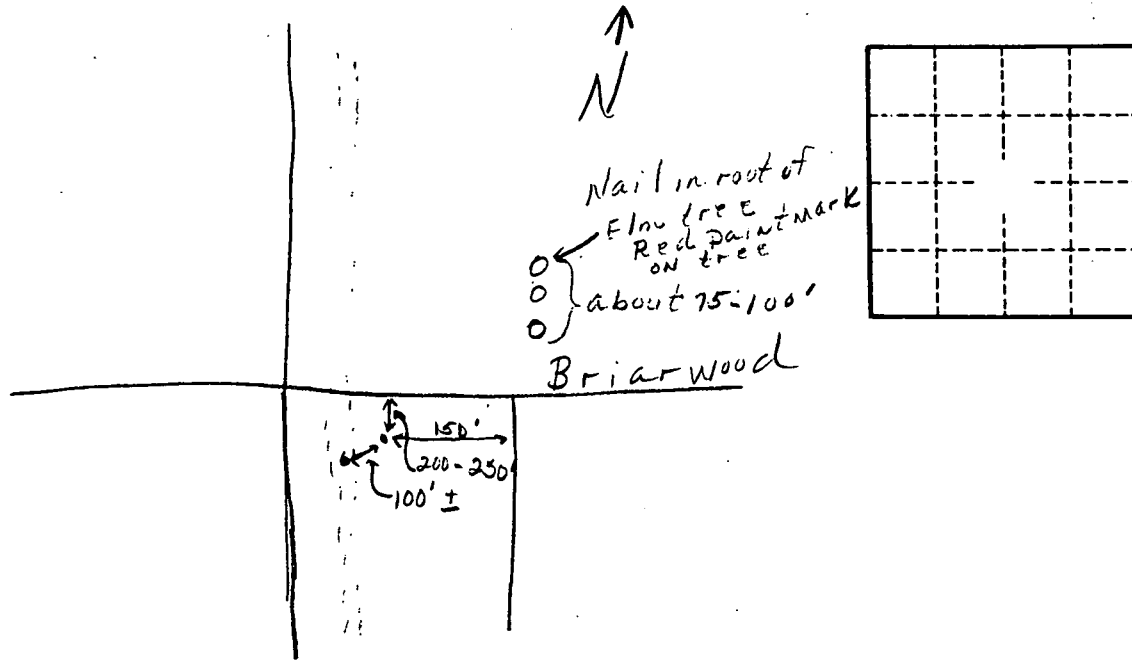 N
Nail in root of
Elm tree
Red Paint Mark
ON tree
about 75-100'
Briarwood
150'
200-250'
100' ±